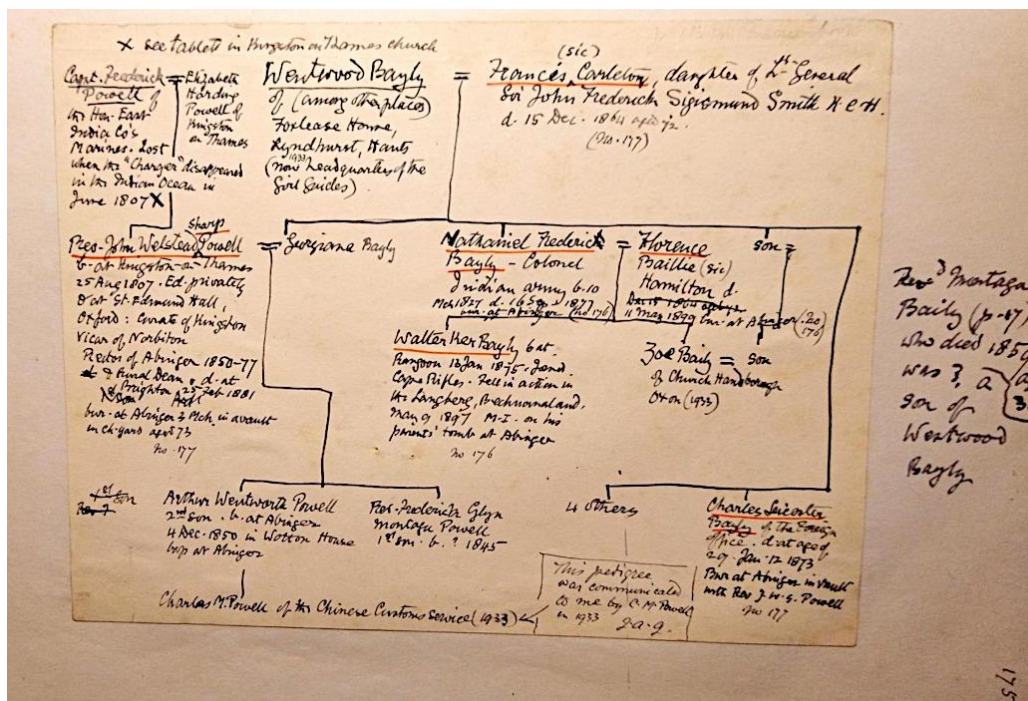 X see tablets in Kingston on Thames church
Capt. Frederick
Powell of
the Hon. East
India Co's
Marines. Lost
when the "Charger" disappeared
in the Indian Ocean in
June 1807 X
= Elizabeth
Harding
Powell of
Kingston
on Thames
Wentwood Bayly
of (among other places)
Foxlease House,
Lyndhurst, Hants
(now 1933 headquarters of the
Girl Guides)
=
(sic)
Frances Carleton, daughter of Lt-General
Sir John Frederick Sigismund Smith K.C.H.
d. 15 Dec. 1864 aged 72
(no. 177)
sharp
Rev. John Welstead Powell
b. at Kingston-on-Thames
25 Aug 1807. Ed. privately
& at St. Edmund Hall,
Oxford: Curate of Kingston
Vicar of Norbiton
Rector of Abinger 1850-77
& Rural Dean. d. at
Brighton 25 Feb 1881
bur. at Abinger in a vault
in ch-yard aged 73
no. 177
= Georgiana Bayly
Nathaniel Frederick
Bayly - Colonel
Indian army b. 10
Mch 1827 d. 16 Sep. 1877
bur. at Abinger (no 176)
= Florence
Baillie (sic)
Hamilton d.
Dec 15 1864 aged 72
11 May 1879 bur. at Abinger (no. 176)
son =
Walter Ker Bayly b at
Rangoon 13 Jan 1875.
Cape Rifles. Fell in action in
the Langberg, Bechuanaland,
May 9 1897 M.I. on his
parents' tomb at Abinger
no 176
Zoe Baily = son
of Church Handborough
Oxon (1933)
1st son
Arthur Wentworth Powell
2nd son. b. at Abinger
4 Dec. 1850 in Wotton House
bap at Abinger
Rev. Frederick Glyn
Montagu Powell
1st son. b. ? 1845
4 others
Charles Leicester
Bayly of the Foreign
Office. d. at age of
29. Jan. 12 1873
Bur at Abinger in vault
with Rev J. W. S. Powell
no 177
Charles M. Powell of the Chinese Customs Service (1933)
This pedigree
was communicated
to me by C. M. Powell
in 1933 J.A.G.
Revd Montagu
Baily (p. 47)
who died 185
was ?, a
son of
Westwood
Bayly
175